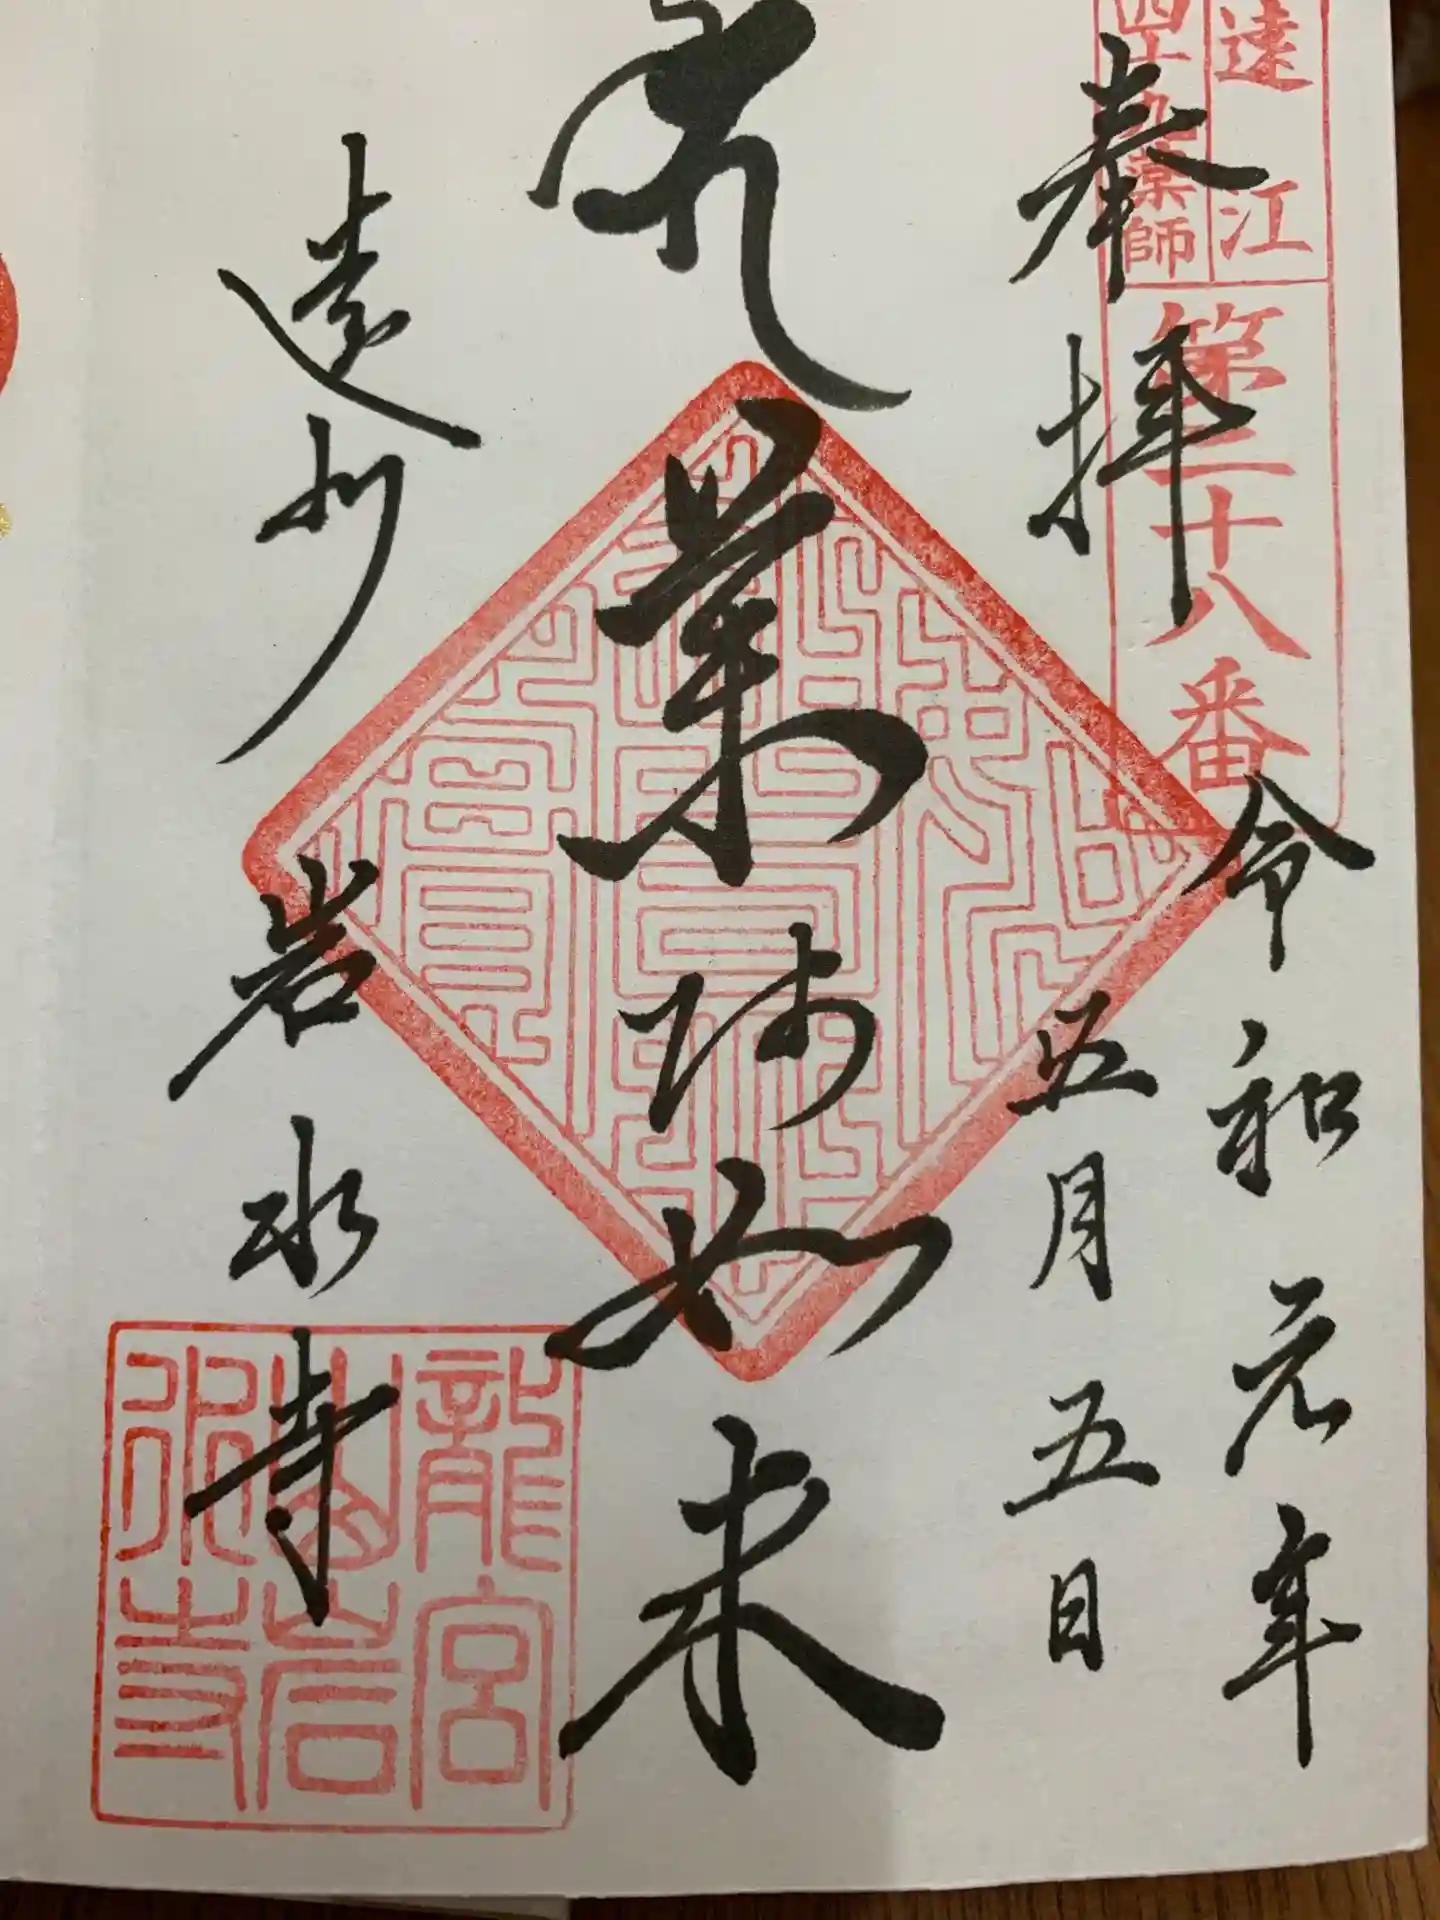 遠江
四十九薬師
第二十八番
奉拝
令和元年
五月五日
薬師如来
遠州
岩水寺
龍宮
山岩
水寺